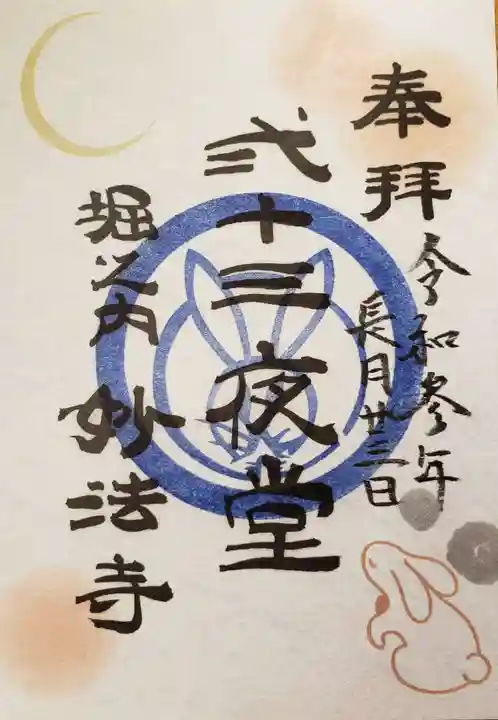 奉拝
令和参年
長月廿三日
弐十三夜堂
堀之内 妙法寺